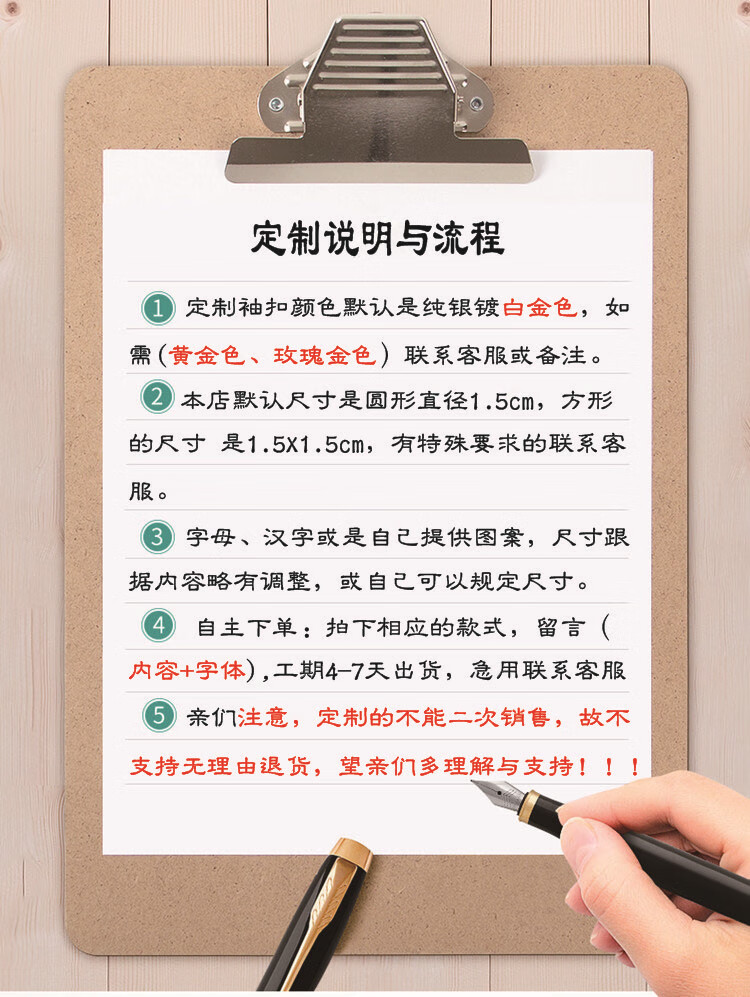 定制说明与流程
1 定制袖扣颜色默认是纯银镀白金色，如
需(黄金色、玫瑰金色) 联系客服或备注。
2 本店默认尺寸是圆形直径1.5cm，方形
的尺寸 是1.5X1.5cm，有特殊要求的联系客
服。
3 字母、汉字或是自己提供图案，尺寸跟
据内容略有调整，或自己可以规定尺寸。
4 自主下单：拍下相应的款式，留言（
内容+字体),工期4-7天出货，急用联系客服
5 亲们注意，定制的不能二次销售，故不
支持无理由退货，望亲们多理解与支持！！！